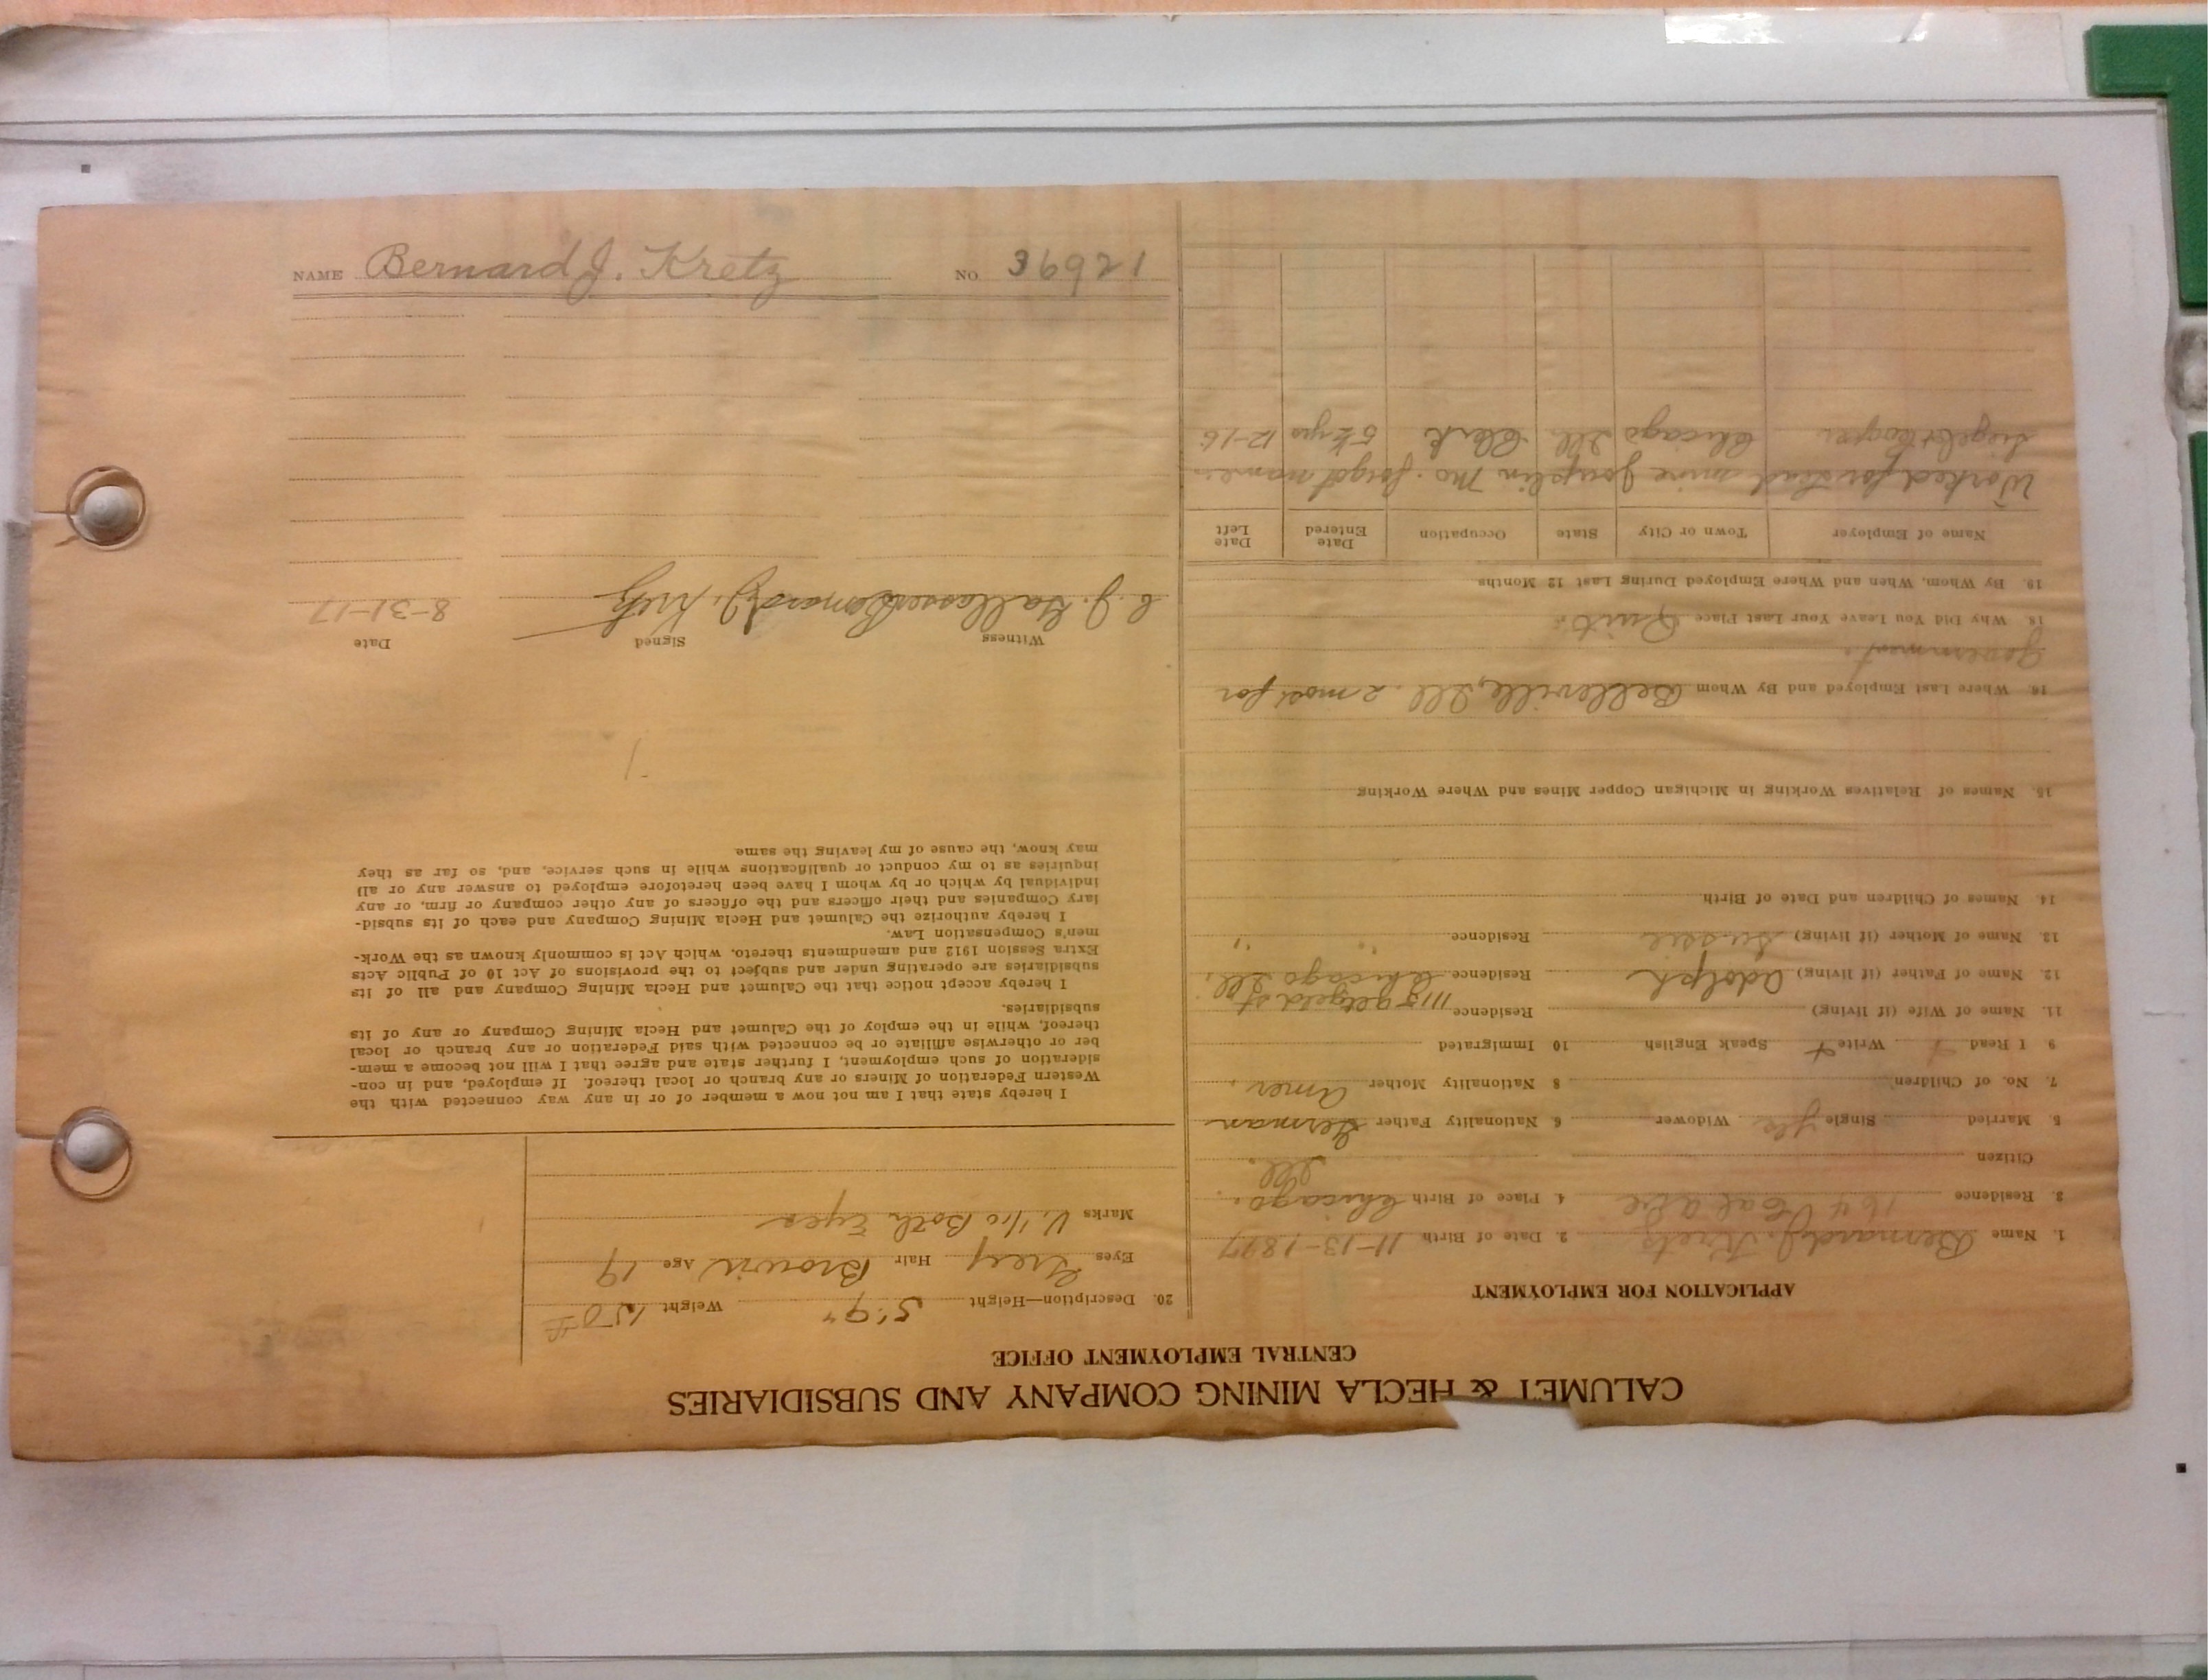 CALUMET & HECLA MINING COMPANY AND SUBSIDIARIES
CENTRAL EMPLOYMENT OFFICE
APPLICATION FOR EMPLOYMENT
1. Name Bernard J. Kretz 2. Date of Birth 11-13-1897
3. Residence 164 4. Place of Birth Chicago,
Citizen Ill.
5. Married Single Yes Widower 6. Nationality Father German
7. No. of Children 8 Nationality Mother Amer.
9 I Read Write Speak English 10 Immigrated
11. Name of Wife (if living) Residence 1115 St
12. Name of Father (if living) Adolph Residence Chicago Ill.
13. Name of Mother (if living) Residence " "
14. Names of Children and Date of Birth
15. Names of Relatives Working in Michigan Copper Mines and Where Working
16. Where Last Employed and By Whom Belleville, Ill. 2 mos for
Government.
18. Why Did You Leave Your Last Place Quit.
19. By Whom, When and Where Employed During Last 12 Months
Name of Employer Town or City State Occupation Date Entered Date Left
Worked for lead mine Jouplin Mo. forgot name
Siegel & Cooper Chicago Ill Clerk 5½ yrs 12-16
20. Description—Height 5'9" Weight 150#
Eyes Grey Hair Brown Age 19
Marks V. 1/10 Both Eyes
I hereby state that I am not now a member of or in any way connected with the
Western Federation of Miners or any branch or local thereof. If employed, and in con-
sideration of such employment, I further state and agree that I will not become a mem-
ber or otherwise affiliate or be connected with said Federation or any branch or local
thereof, while in the employ of the Calumet and Hecla Mining Company or any of its
subsidiaries.
I hereby accept notice that the Calumet and Hecla Mining Company and all of its
subsidiaries are operating under and subject to the provisions of Act 10 of Public Acts
Extra Session 1912 and amendments thereto, which Act is commonly known as the Work-
men's Compensation Law.
I hereby authorize the Calumet and Hecla Mining Company and each of its subsid-
iary Companies and their officers and the officers of any other company or firm, or any
individual by which or by whom I have been heretofore employed to answer any or all
inquiries as to my conduct or qualifications while in such service, and, so far as they
may know, the cause of my leaving the same.
Witness Signed Date
C. J. Bernard J. Kretz 8-31-17
NAME Bernard J. Kretz NO. 36921